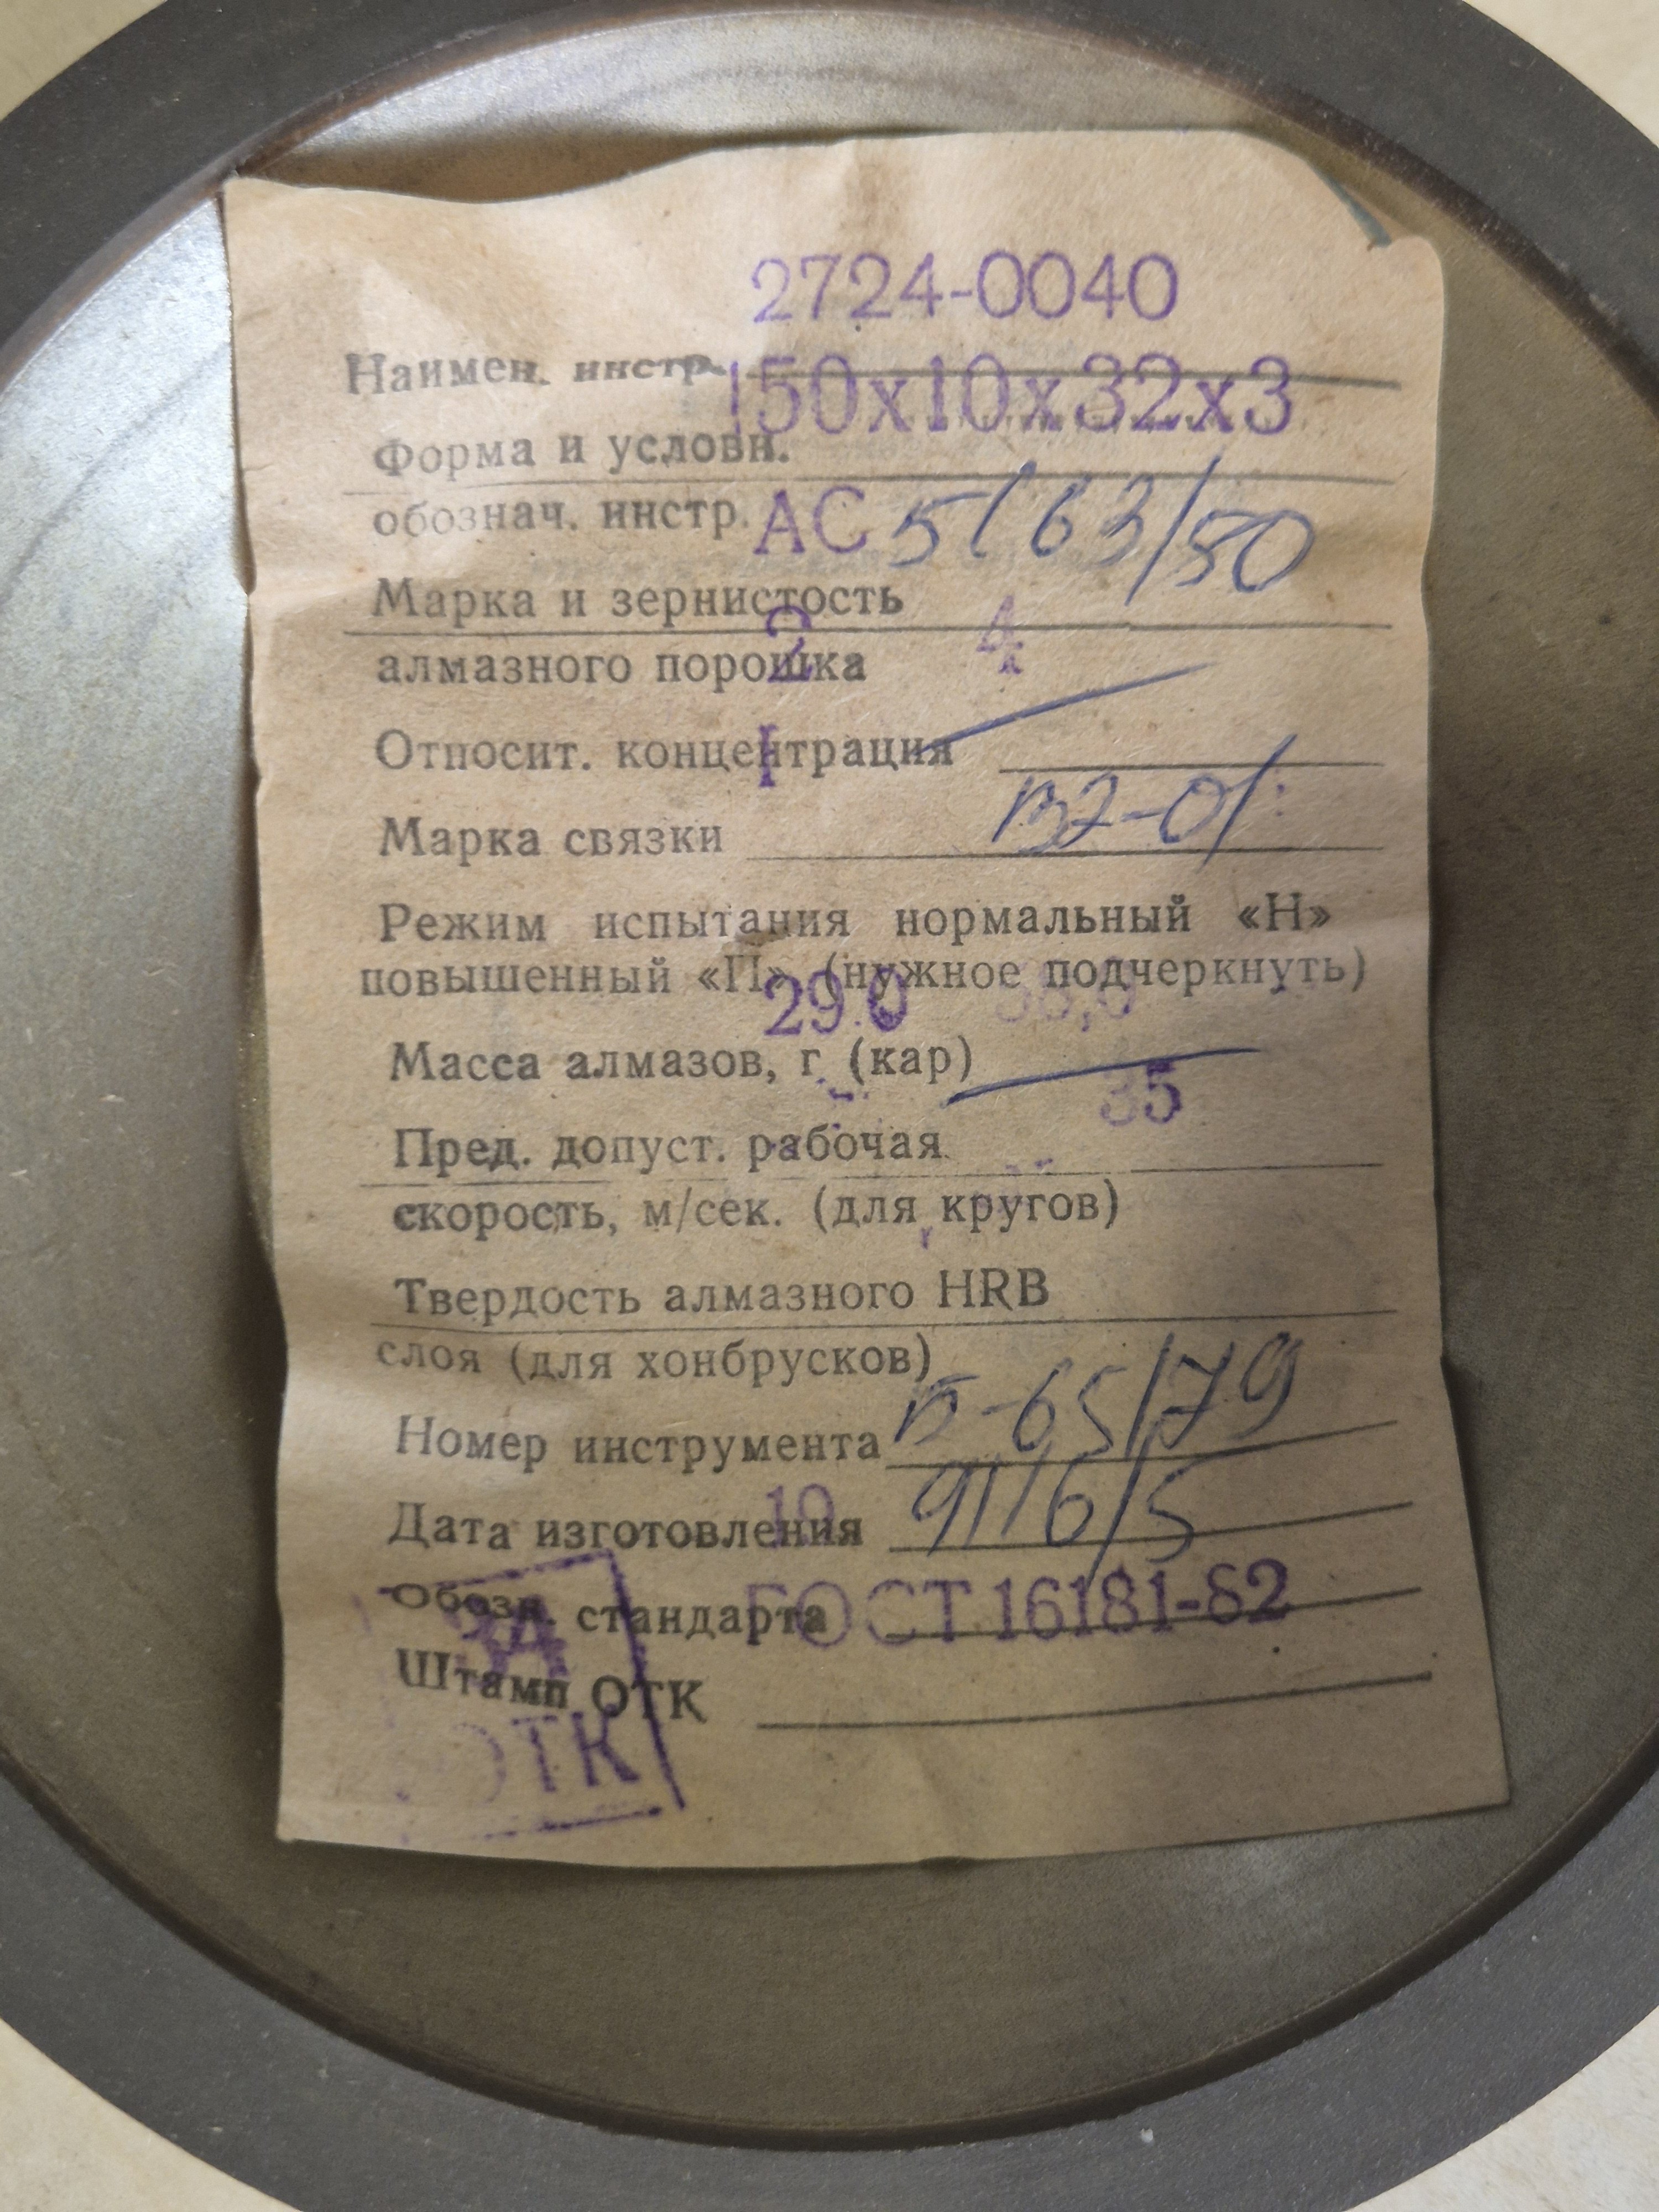 2724-0040
Наимен. инстр.
150х10х32х3
Форма и условн.
обознач. инстр.
АС 5 ( 63/50
Марка и зернистость
2 4
алмазного порошка
Относит. концентрация
I
Марка связки В2-01
Режим испытания нормальный «Н»
повышенный «П» (нужное подчеркнуть)
29.0
Масса алмазов, г (кар)
35
Пред. допуст. рабочая
скорость, м/сек. (для кругов)
Твердость алмазного HRB
слоя (для хонбрусков)
Номер инструмента Б-65/79
10
Дата изготовления
Обозн. стандарта ГОСТ 16181-82
Штамп ОТК
ОТК